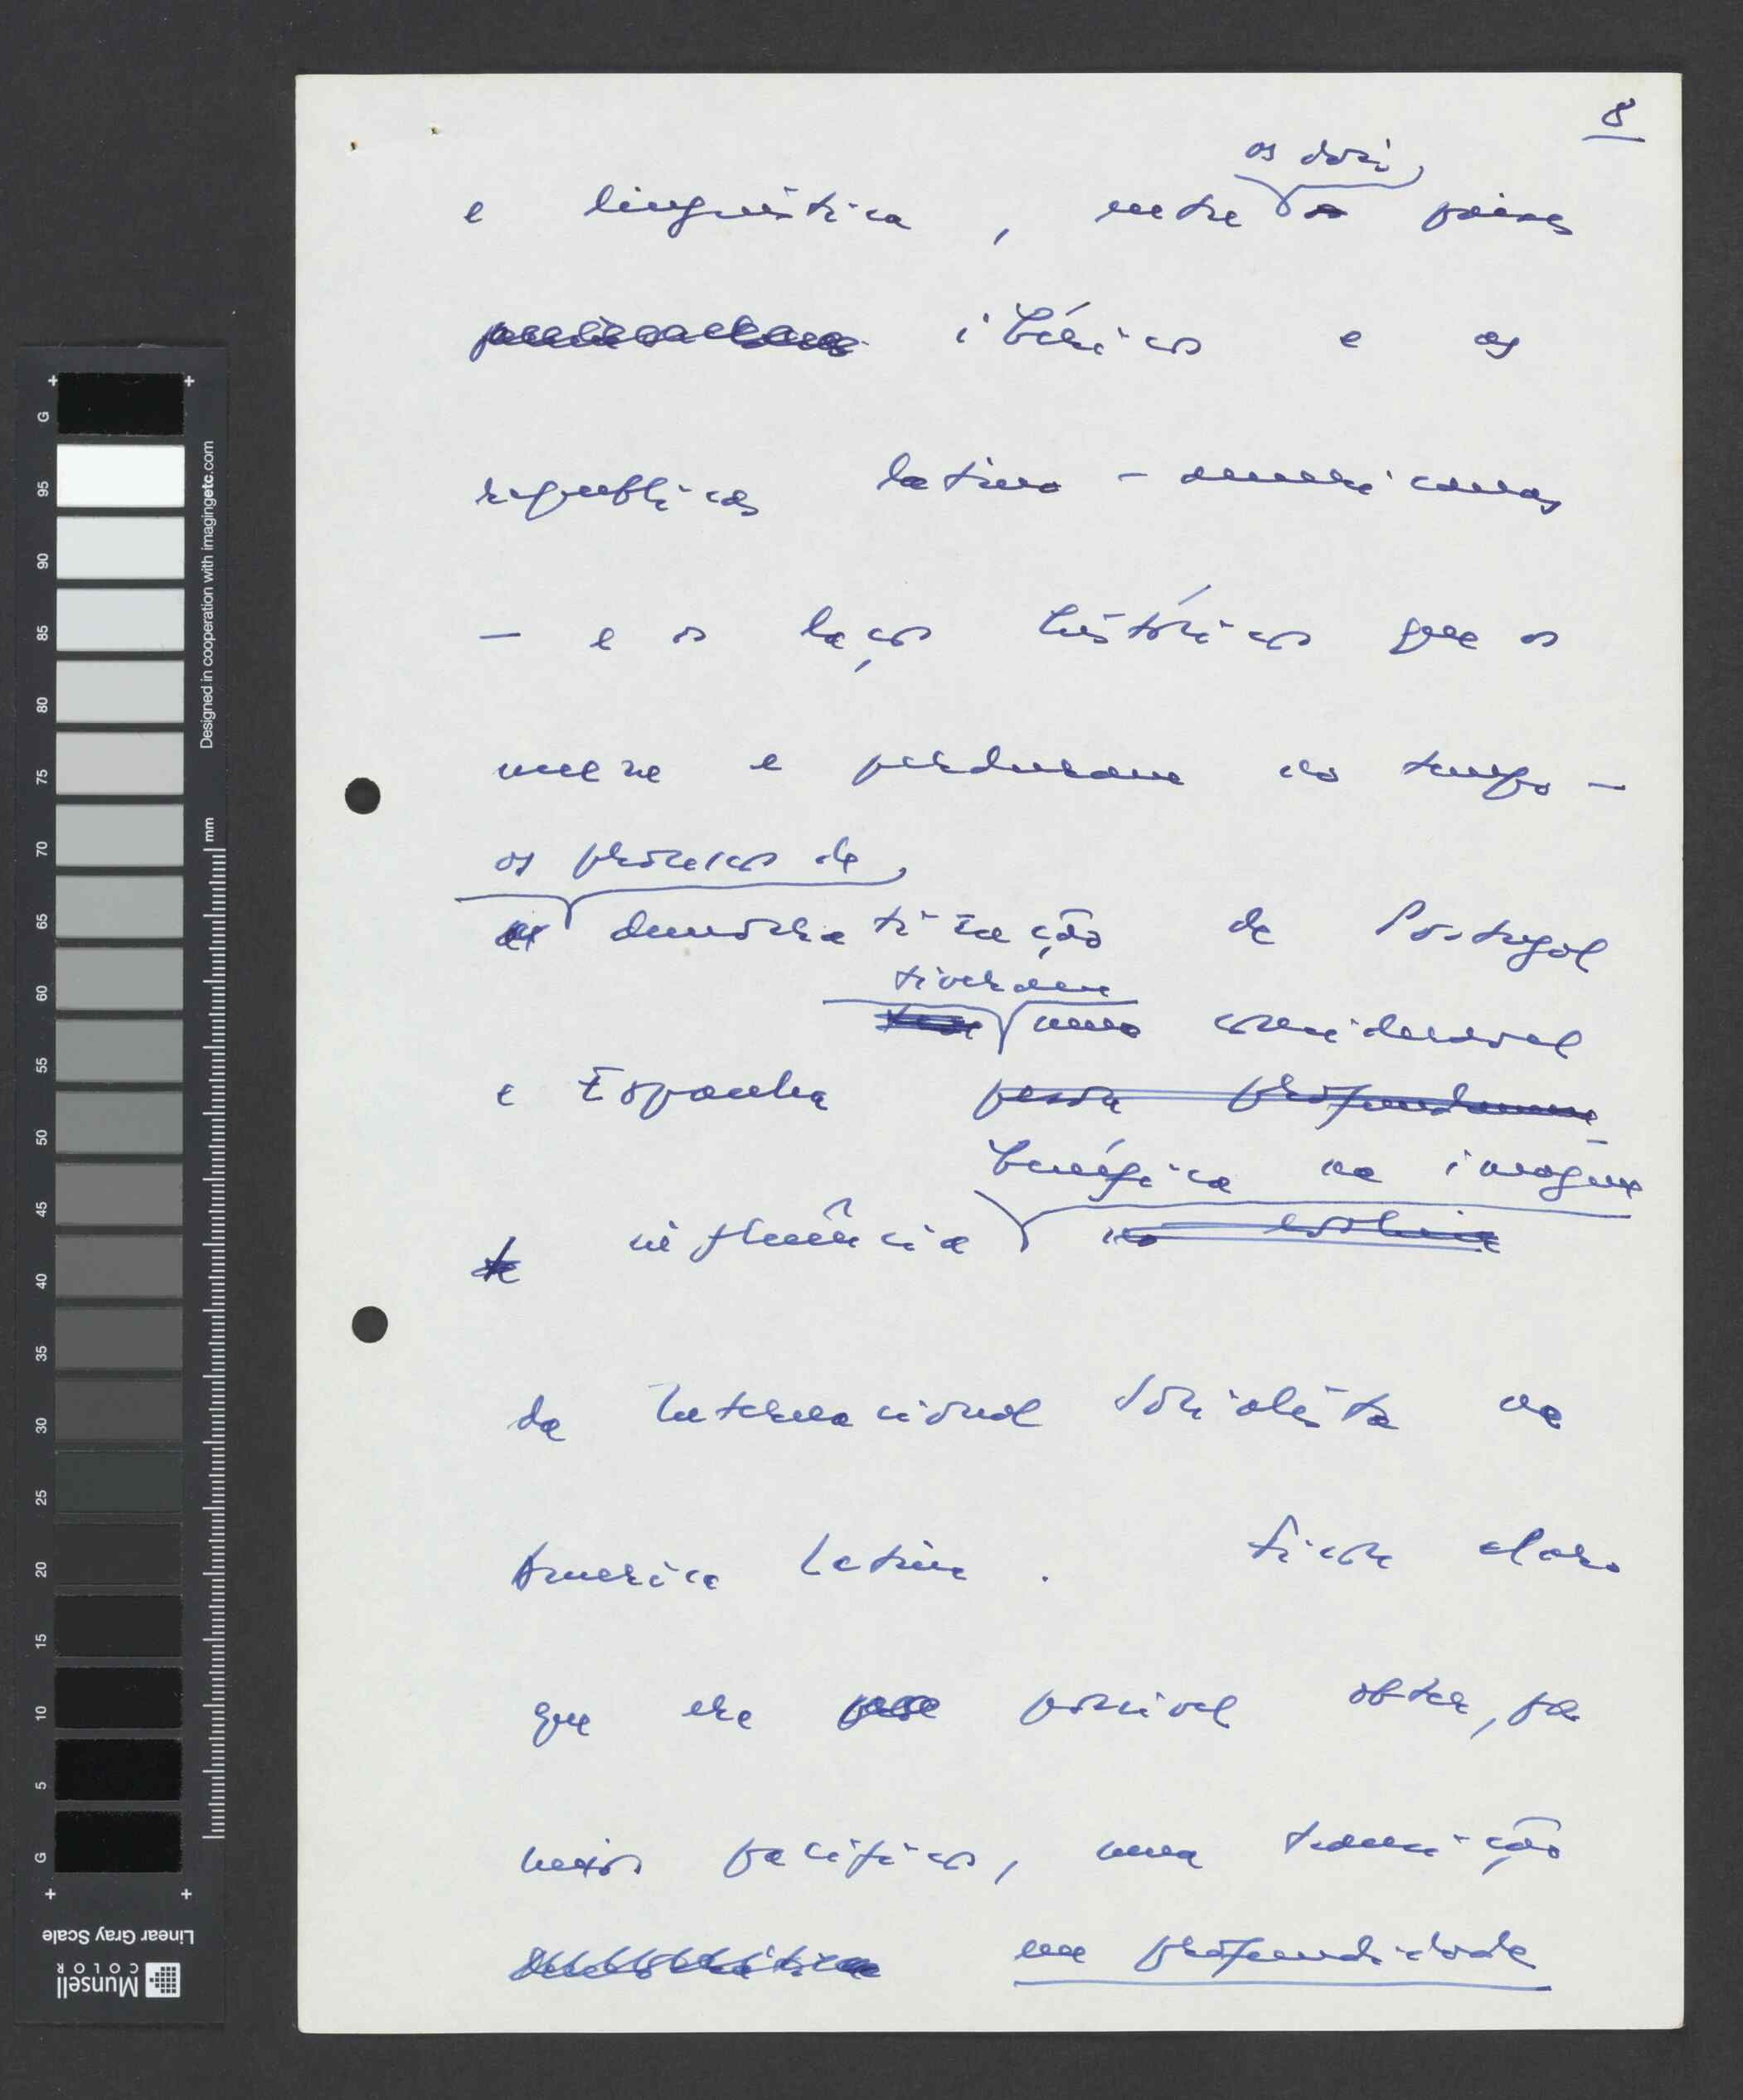 8
os dois
e linguística, entre os países
peninsulares ibéricos e as
republicas latino-americanas
— e os laços históricos que os
unem e perduram no tempo —
os processos de
democratização de Portugal
tiveram
uma consideravel
e Espanha pesou profundamen-
benéfica na imagem
te influência
da Internacional Socialista na
America Latina. Ficou claro
que era possivel obter, por
meios pacíficos, uma transição
democrática em profundidade
G
95
90
85
80
75
70
65
60
55
50
45
40
35
30
25
20
15
10
5
G
mm
Designed in cooperation with imagingetc.com
Linear Gray Scale
Munsell
COLOR